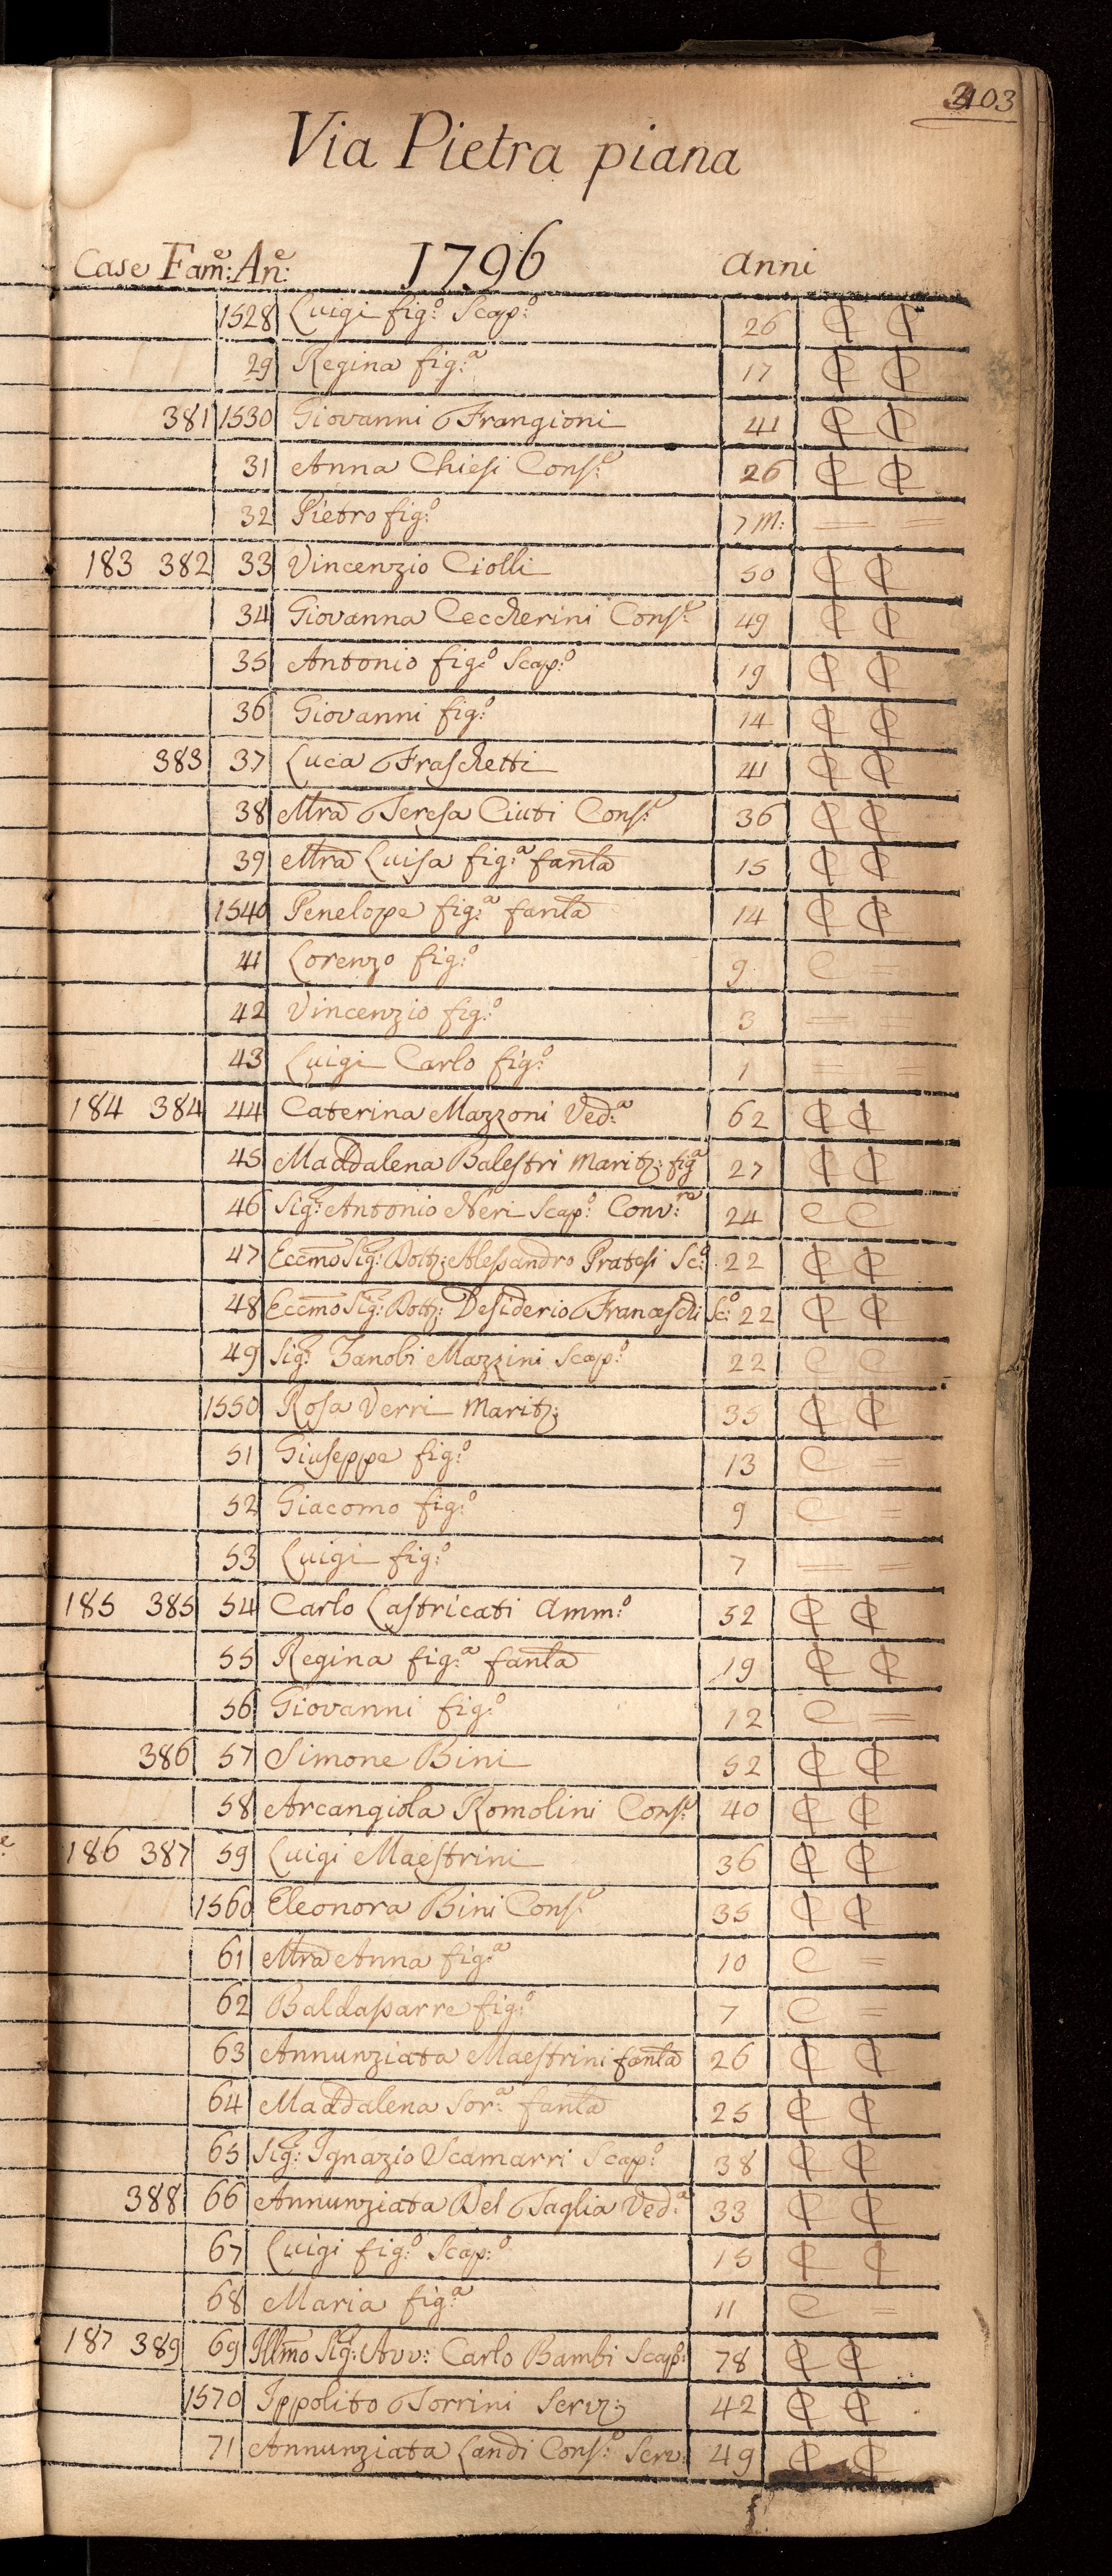 403
Via Pietra piana
Case Fam:e An:e 1796 Anni
1528 Luigi fig:o Scap:o 26 ₵ ₵
29 Regina fig:a 17 ₵ ₵
381 1530 Giovanni Frangioni 41 ₵ ₵
31 Anna Chiesi Cons:e 26 ₵ ₵
32 Pietro fig:o 7 M: =
183 382 33 Vincenzio Ciolli 50 ₵ ₵
34 Giovanna Ceccherini Cons:e 49 ₵ ₵
35 Antonio fig:o Scap:o 19 ₵ ₵
36 Giovanni fig:o 14 ₵ ₵
383 37 Luca Fraschetti 41 ₵ ₵
38 Mra Teresa Ciuti Cons:e 36 ₵ ₵
39 Mra Luisa fig:a fanla 15 ₵ ₵
1540 Penelope fig:a fanla 14 ₵ ₵
41 Lorenzo fig:o 9 C =
42 Vincenzio fig:o 3 =
43 Luigi Carlo fig:o 1 = =
184 384 44 Caterina Mazzoni Ved:a 62 ₵ ₵
45 Maddalena Balestri Marit: fig:a 27 ₵ ₵
46 Sig:r Antonio Neri Scap:o Conv:re 24 C C
47 Eccmo Sig:r Dott: Alessandro Pratesi Sc:o 22 ₵ ₵
48 Eccmo Sig:r Dott: Desiderio Franceschi Sc:o 22 ₵ ₵
49 Sig:r Zanobi Mazzini Scap:o 22 C C
1550 Rosa Verri Marit: 35 ₵ ₵
51 Giuseppe fig:o 13 C =
52 Giacomo fig:o 9 C =
53 Luigi fig:o 7 = =
185 385 54 Carlo Lastricati Amm:o 52 ₵ ₵
55 Regina fig:a fanla 19 ₵ ₵
56 Giovanni fig:o 12 C =
386 57 Simone Bini 52 ₵ ₵
58 Arcangiola Romolini Cons:e 40 ₵ ₵
186 387 59 Luigi Maestrini 36 ₵ ₵
1560 Eleonora Bini Cons:e 35 ₵ ₵
61 Mra Anna fig:a 10 C =
62 Baldassarre fig:o 7 C =
63 Annunziata Maestrini fanla 26 ₵ ₵
64 Maddalena Sor:a fanla 25 ₵ ₵
65 Sig:r Ignazio Scamarri Scap:o 38 ₵ ₵
388 66 Annunziata Del Taglia Ved:a 33 ₵ ₵
67 Luigi fig:o Scap:o 15 ₵ ₵
68 Maria fig:a 11 C =
187 389 69 Illmo Sig:r Avv: Carlo Bambi Scap:o 78 ₵ ₵
1570 Ippolito Torrini Serv: 42 ₵ ₵
71 Annunziata Landi Cons:e Serv: 49 ₵ ₵